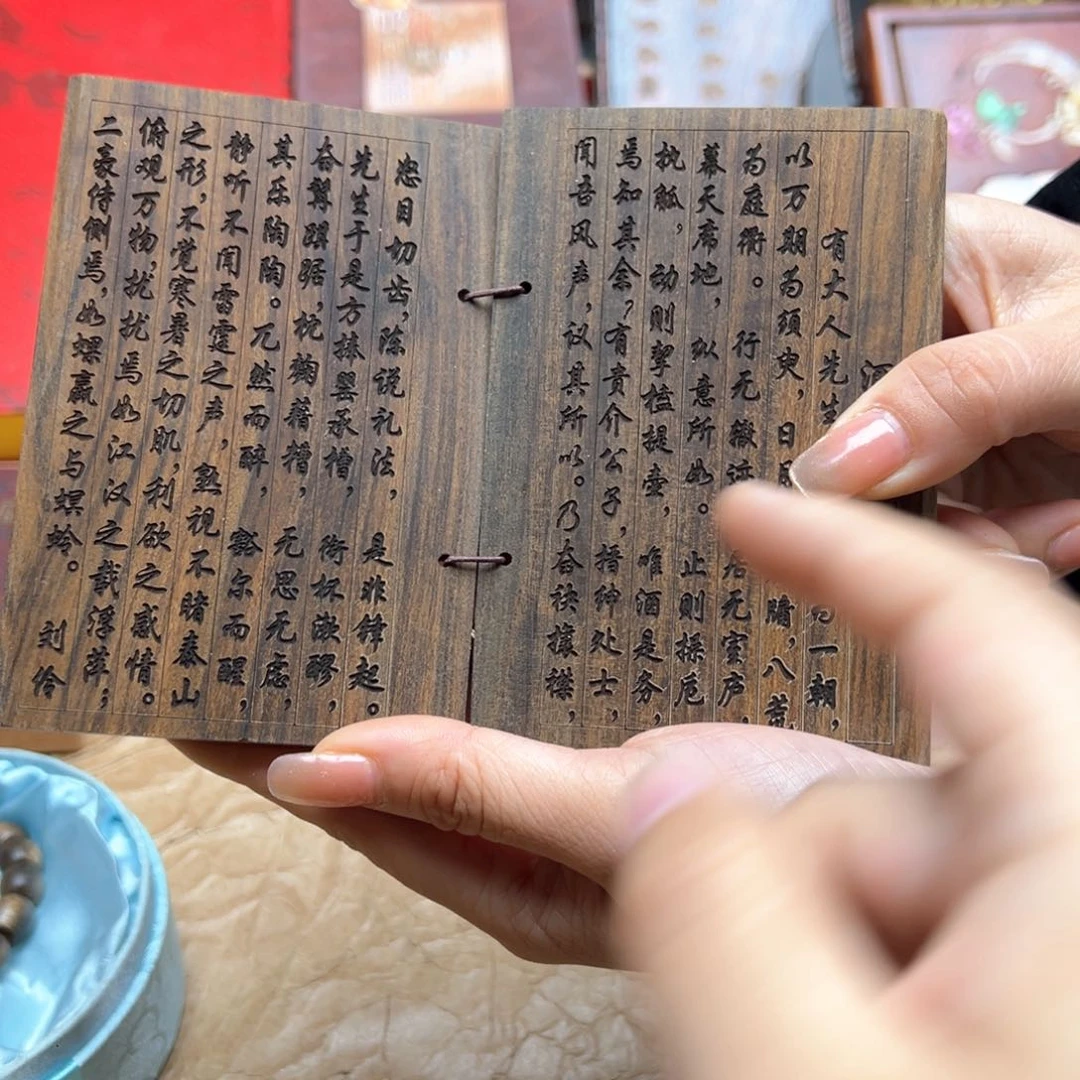 有大人先生 一朝，
以万期为须臾，日 牖，八荒
为庭衢。行无辙 居无室庐，
幕天席地，纵意所如。止则操卮
执觚，动则挈榼提壶，唯酒是务，
焉知其余？有贵介公子，搢绅处士，
闻吾风声，议其所以。乃奋袂攘襟，
怒目切齿，陈说礼法，是非锋起。
先生于是方捧罂承槽，衔杯漱醪，
奋髯踑踞，枕麹藉糟，无思无虑，
其乐陶陶。兀然而醉，豁尔而醒，
静听不闻雷霆之声，熟视不睹泰山
之形，不觉寒暑之切肌，利欲之感情。
俯观万物，扰扰焉如江汉之载浮萍；
二豪侍侧焉，如蜾蠃之与螟蛉。 刘伶